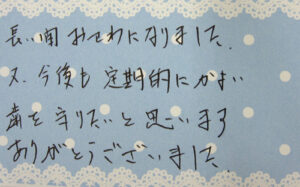 長い間 おせわになりました.
又、今後も 定期的に かよい
歯を 守りたいと 思います
ありがとうございました.